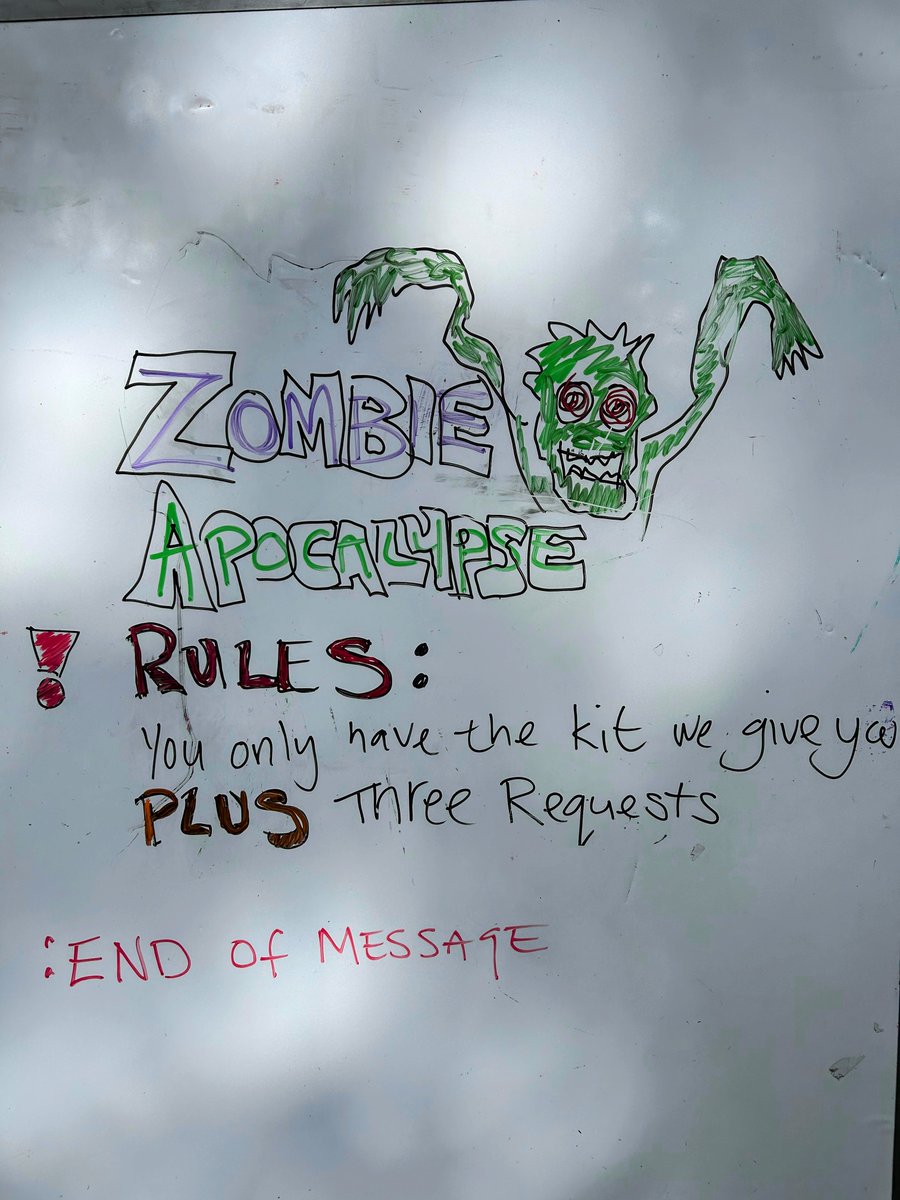 ZOMBIE
APOCALYPSE
! RULES:
You only have the kit we give you
PLUS Three Requests
:END OF MESSAGE